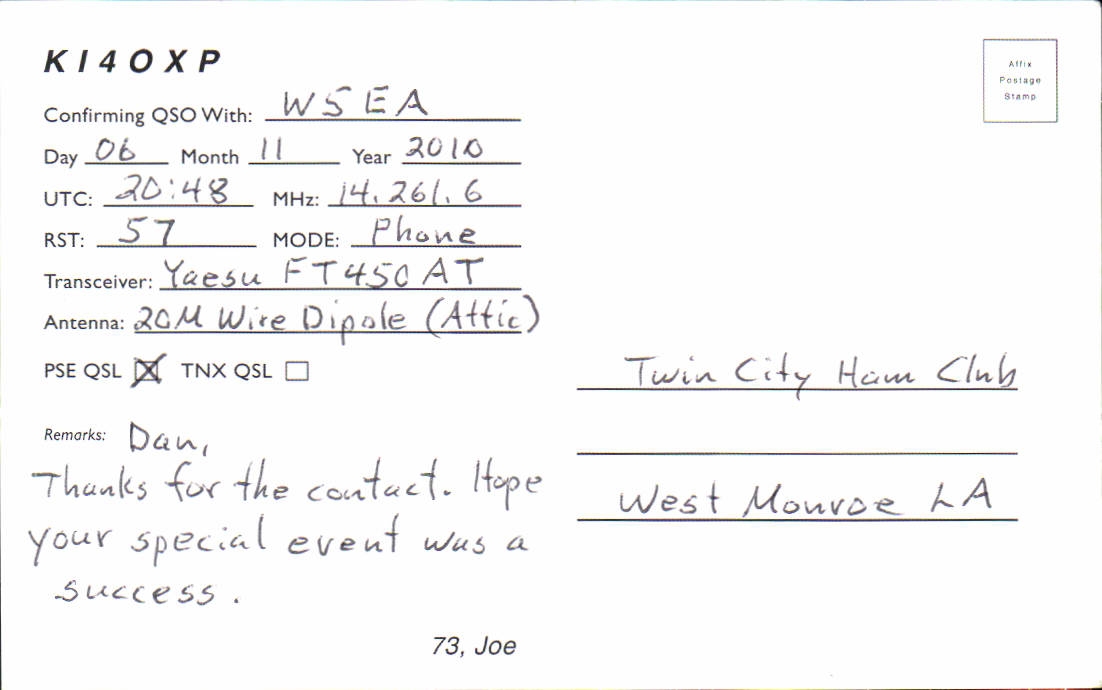 KI4OXP
Affix
Postage
Stamp
Confirming QSO With: W5EA
Day 06 Month 11 Year 2010
UTC: 20:48 MHz: 14.261.6
RST: 57 MODE: Phone
Transceiver: Yaesu FT450AT
Antenna: 20M Wire Dipole (Attic)
PSE QSL ☒ TNX QSL ☐
Twin City Ham Club
West Monroe LA
Remarks: Dan,
Thanks for the contact. Hope
your special event was a
success.
73, Joe